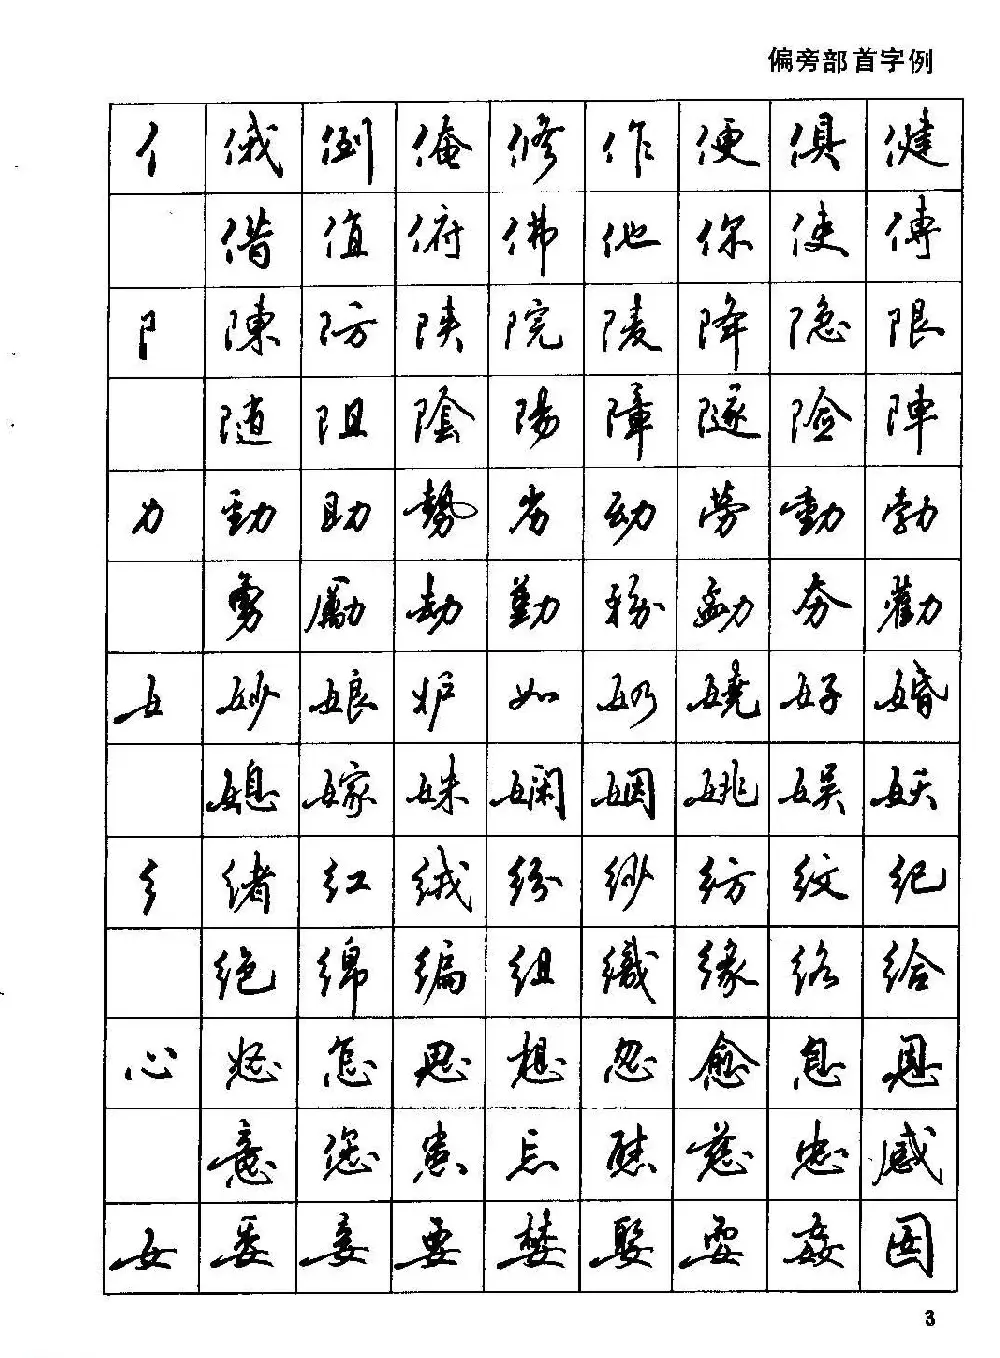 偏旁部首字例
亻 俄 倒 俺 修 作 便 俱 健
借 值 俯 佛 他 你 使 傅
阝 陳 防 陕 院 陵 降 隐 限
随 阻 陰 陽 障 隧 险 陣
力 勁 助 勢 劣 动 劳 動 勃
勇 勵 劫 勤 勐 夯 勸
女 妙 娘 妒 如 奶 娆 好 婚
媳 嫁 妹 娴 姻 姚 娱 妖
纟 绪 红 绒 纷 纱 纺 纹 纪
绝 绵 编 组 織 缘 络 给
心 怒 怎 思 想 忽 愈 息 恩
意 您 患 忘 慈 忠 感
女 委 妾 要 婪 娶 耍 姦
3